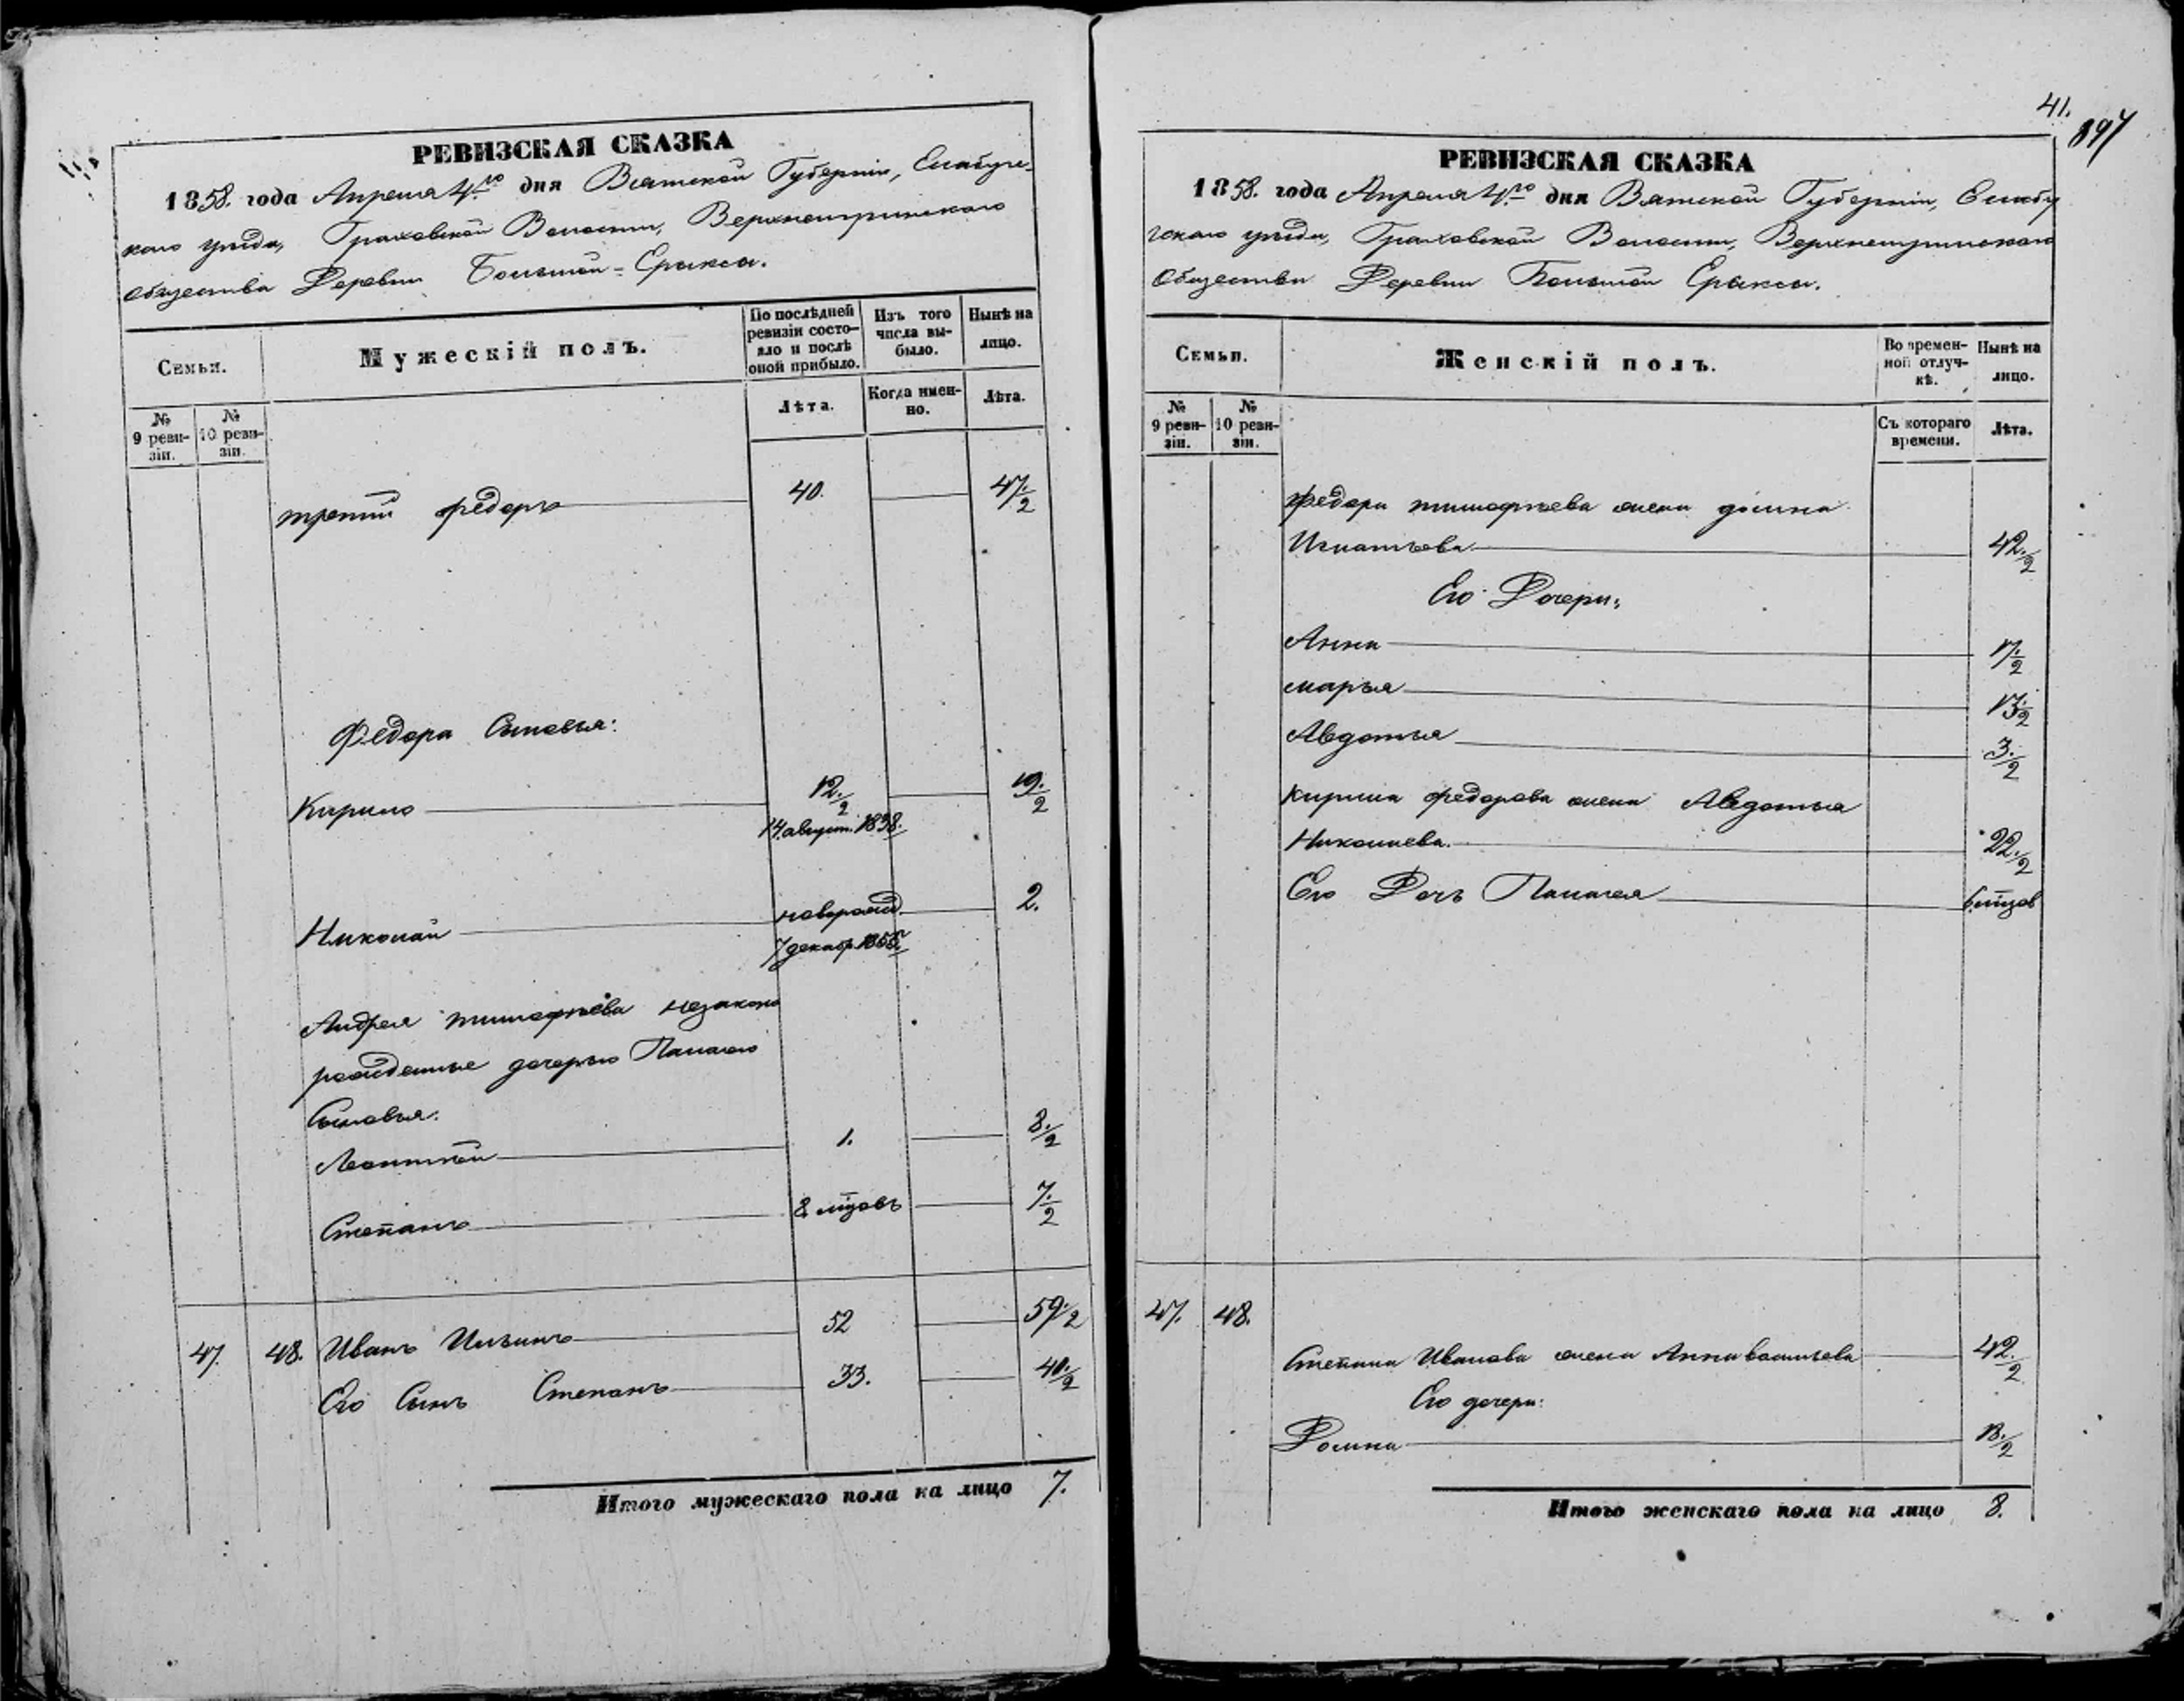 РЕВИЗСКАЯ СКАЗКА
1858. года Апреля 4го дня Вятской Губерніи, Елабуге-
каго уѣзда, Граховской Волости, Верхнеигринскаго
общества Деревни Большой-Ерыксы.
Семьи.
Мужескій полъ.
По послѣдней ревизіи состояло и послѣ оной прибыло.
Изъ того числа выбыло.
Нынѣ на лицо.
№ 9 ревизіи.
№ 10 ревизіи.
Лѣта.
Когда именно.
Лѣта.
третій Федоръ 40. 47 1/2
Федора Сыновья:
Кирило 12. 1/2 19. 1/2
14 август. 1838.
Николай новорожд. 2.
7 декабр. 1855г.
Андрея тимофѣева незаконо
рожденные дочерью Палагею
Сыновья.
Леонтій 1. 8. 1/2
Степанъ 8 мцовъ 7. 1/2
47. 48. Иванъ Ильинъ 52 59 1/2
Его Сынъ Степанъ 33. 40. 1/2
Итого мужескаго пола на лицо 7.
41.
897
РЕВИЗСКАЯ СКАЗКА
1858. года Апреля 4го дня Вятской Губерніи, Елабу
гскаго уѣзда, Граховской Волости, Верхнеигринскаго
Общества Деревни Большой Ерыксы.
Семьи.
Женскій полъ.
Во временной отлучкѣ.
Нынѣ на лицо.
№ 9 ревизіи.
№ 10 ревизіи.
Съ котораго времени.
Лѣта.
Федора тимофѣева жена домна
Игнатьева 42. 1/2
Его Дочери:
Анна 17. 1/2
марья 13. 1/2
Авдотья 3. 1/2
Кирила федорова жена Авдотья
Николаева. 22. 1/2
Его Дочь Палагея 6 мцов
47. 48.
Степана Иванова жена Анна васильева 42. 1/2
Его дочери:
Домна 13. 1/2
Итого женскаго пола на лицо 8.